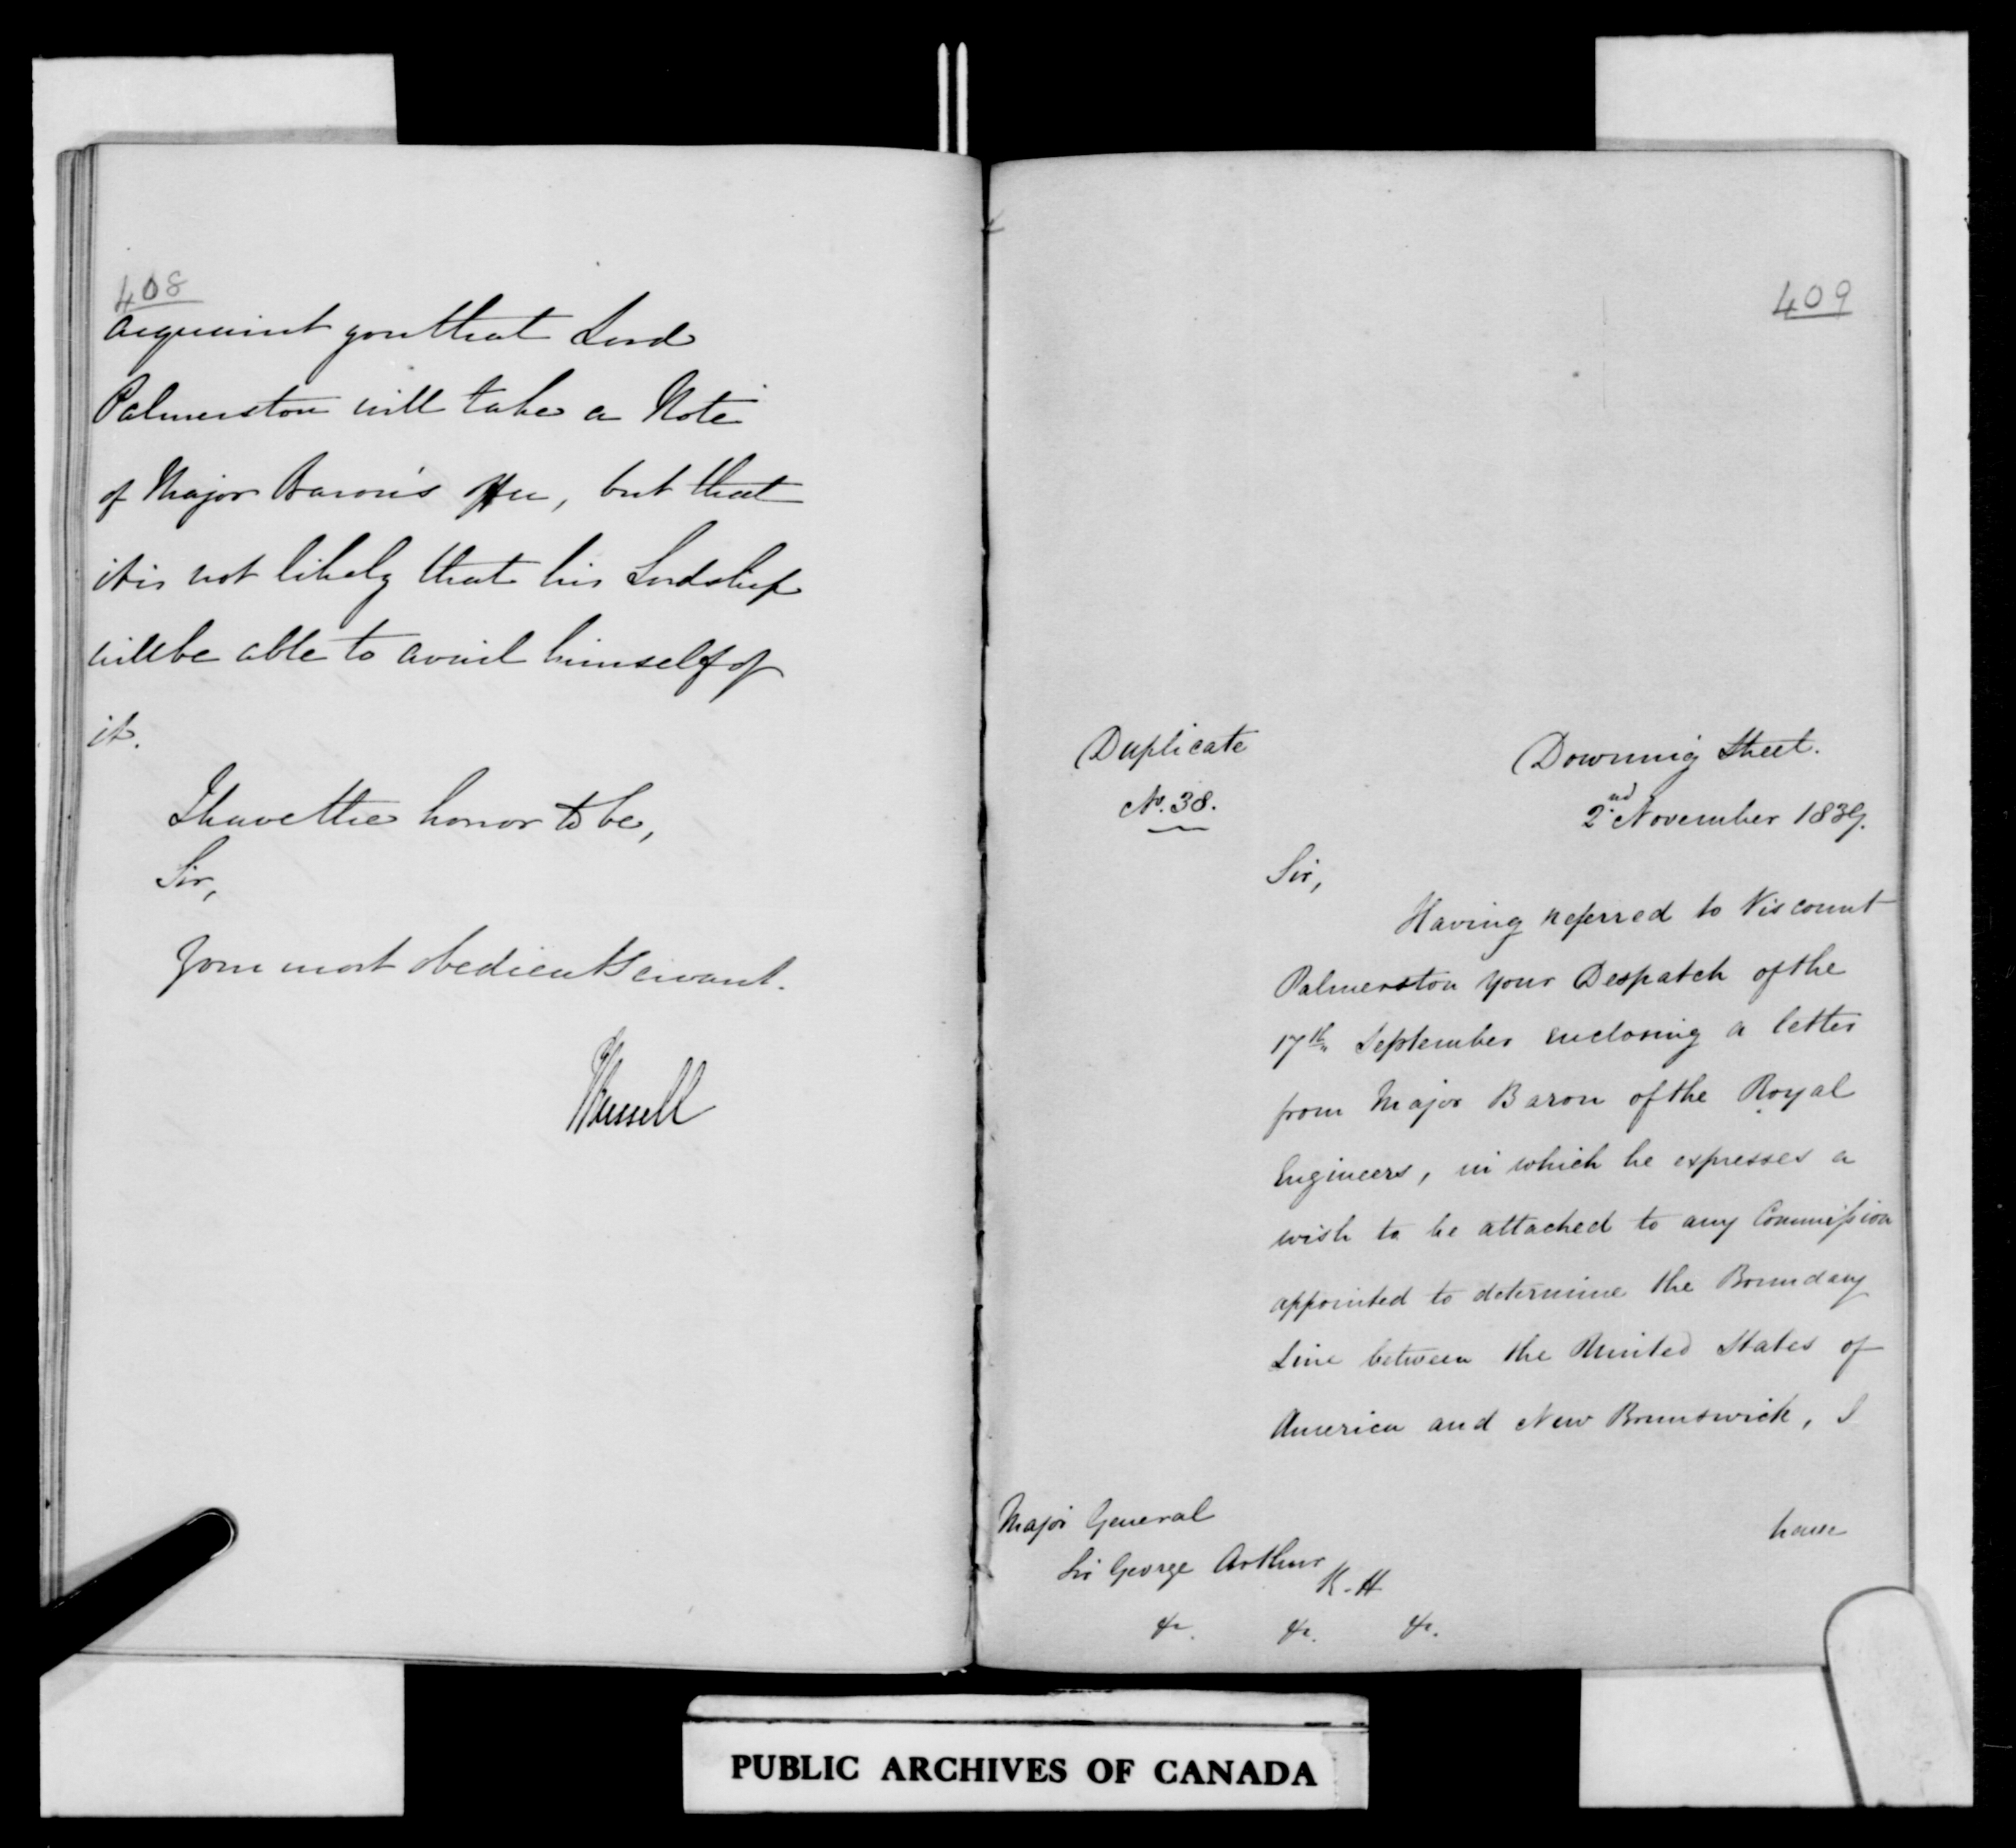 408
acquaint you that Lord
Palmerston will take a Note
of Major Baron's offer, but that
it is not likely that his Lordship
will be able to avail himself of
it.
I have the honor to be,
Sir,
Your most obedient Servant.
JRussell
409
Duplicate
No. 38.
Downing Street.
2nd November 1839.
Sir,
Having referred to Viscount
Palmerston your Despatch of the
17th September enclosing a letter
from Major Baron of the Royal
Engineers, in which he expresses a
wish to be attached to any Commission
appointed to determine the Boundary
Line between the United States of
America and New Brunswick, I
have
Major General
Sir George Arthur K.H
&c. &c. &c.
PUBLIC ARCHIVES OF CANADA